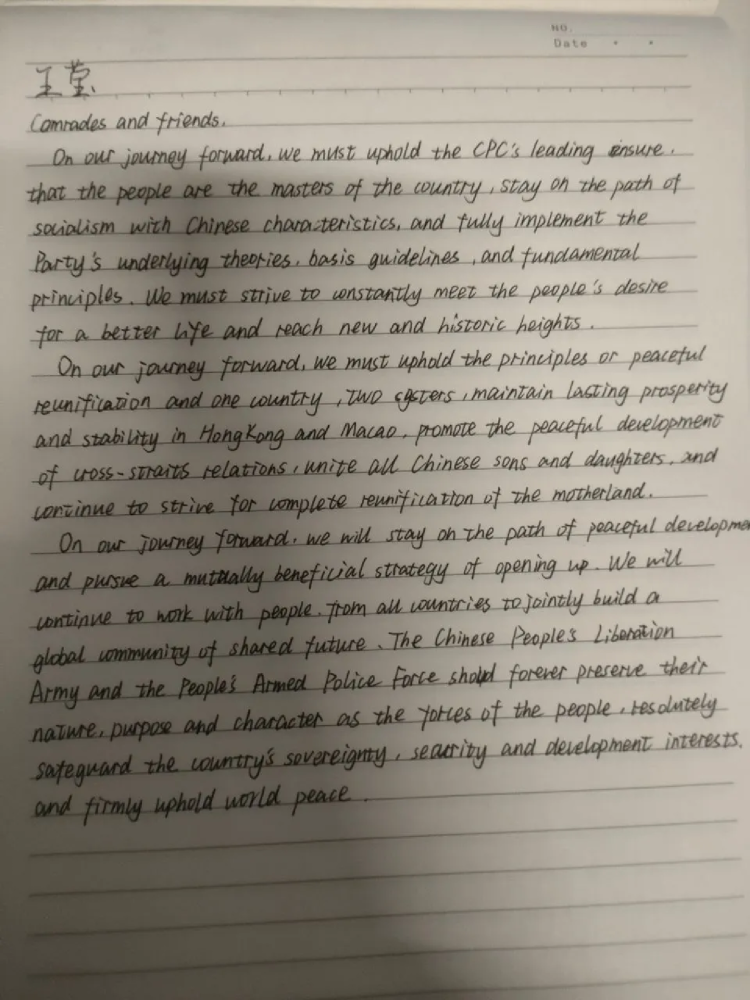 NO.
Date
王堂
Comrades and friends.
On our journey forward, we must uphold the CPC's leading ensure.
that the people are the masters of the country, stay on the path of
socialism with Chinese characteristics, and fully implement the
Party's underlying theories, basis guidelines, and fundamental
principles. We must strive to constantly meet the people's desire
for a better life and reach new and historic heights.
On our journey forward, we must uphold the principles or peaceful
reunification and one country, two systers, maintain lasting prosperity
and stability in HongKong and Macao, promote the peaceful development
of cross-straits relations, unite all Chinese sons and daughters, and
continue to strive for complete reunification of the motherland.
On our journey forward, we will stay on the path of peaceful developmen
and pursue a mutually beneficial strategy of opening up. We will
continue to work with people from all countries to jointly build a
global community of shared future. The Chinese People's Liberation
Army and the People's Armed Police Force should forever preserve their
nature, purpose and character as the forces of the people, resolutely
safeguard the country's sovereignty, security and development interests.
and firmly uphold world peace.